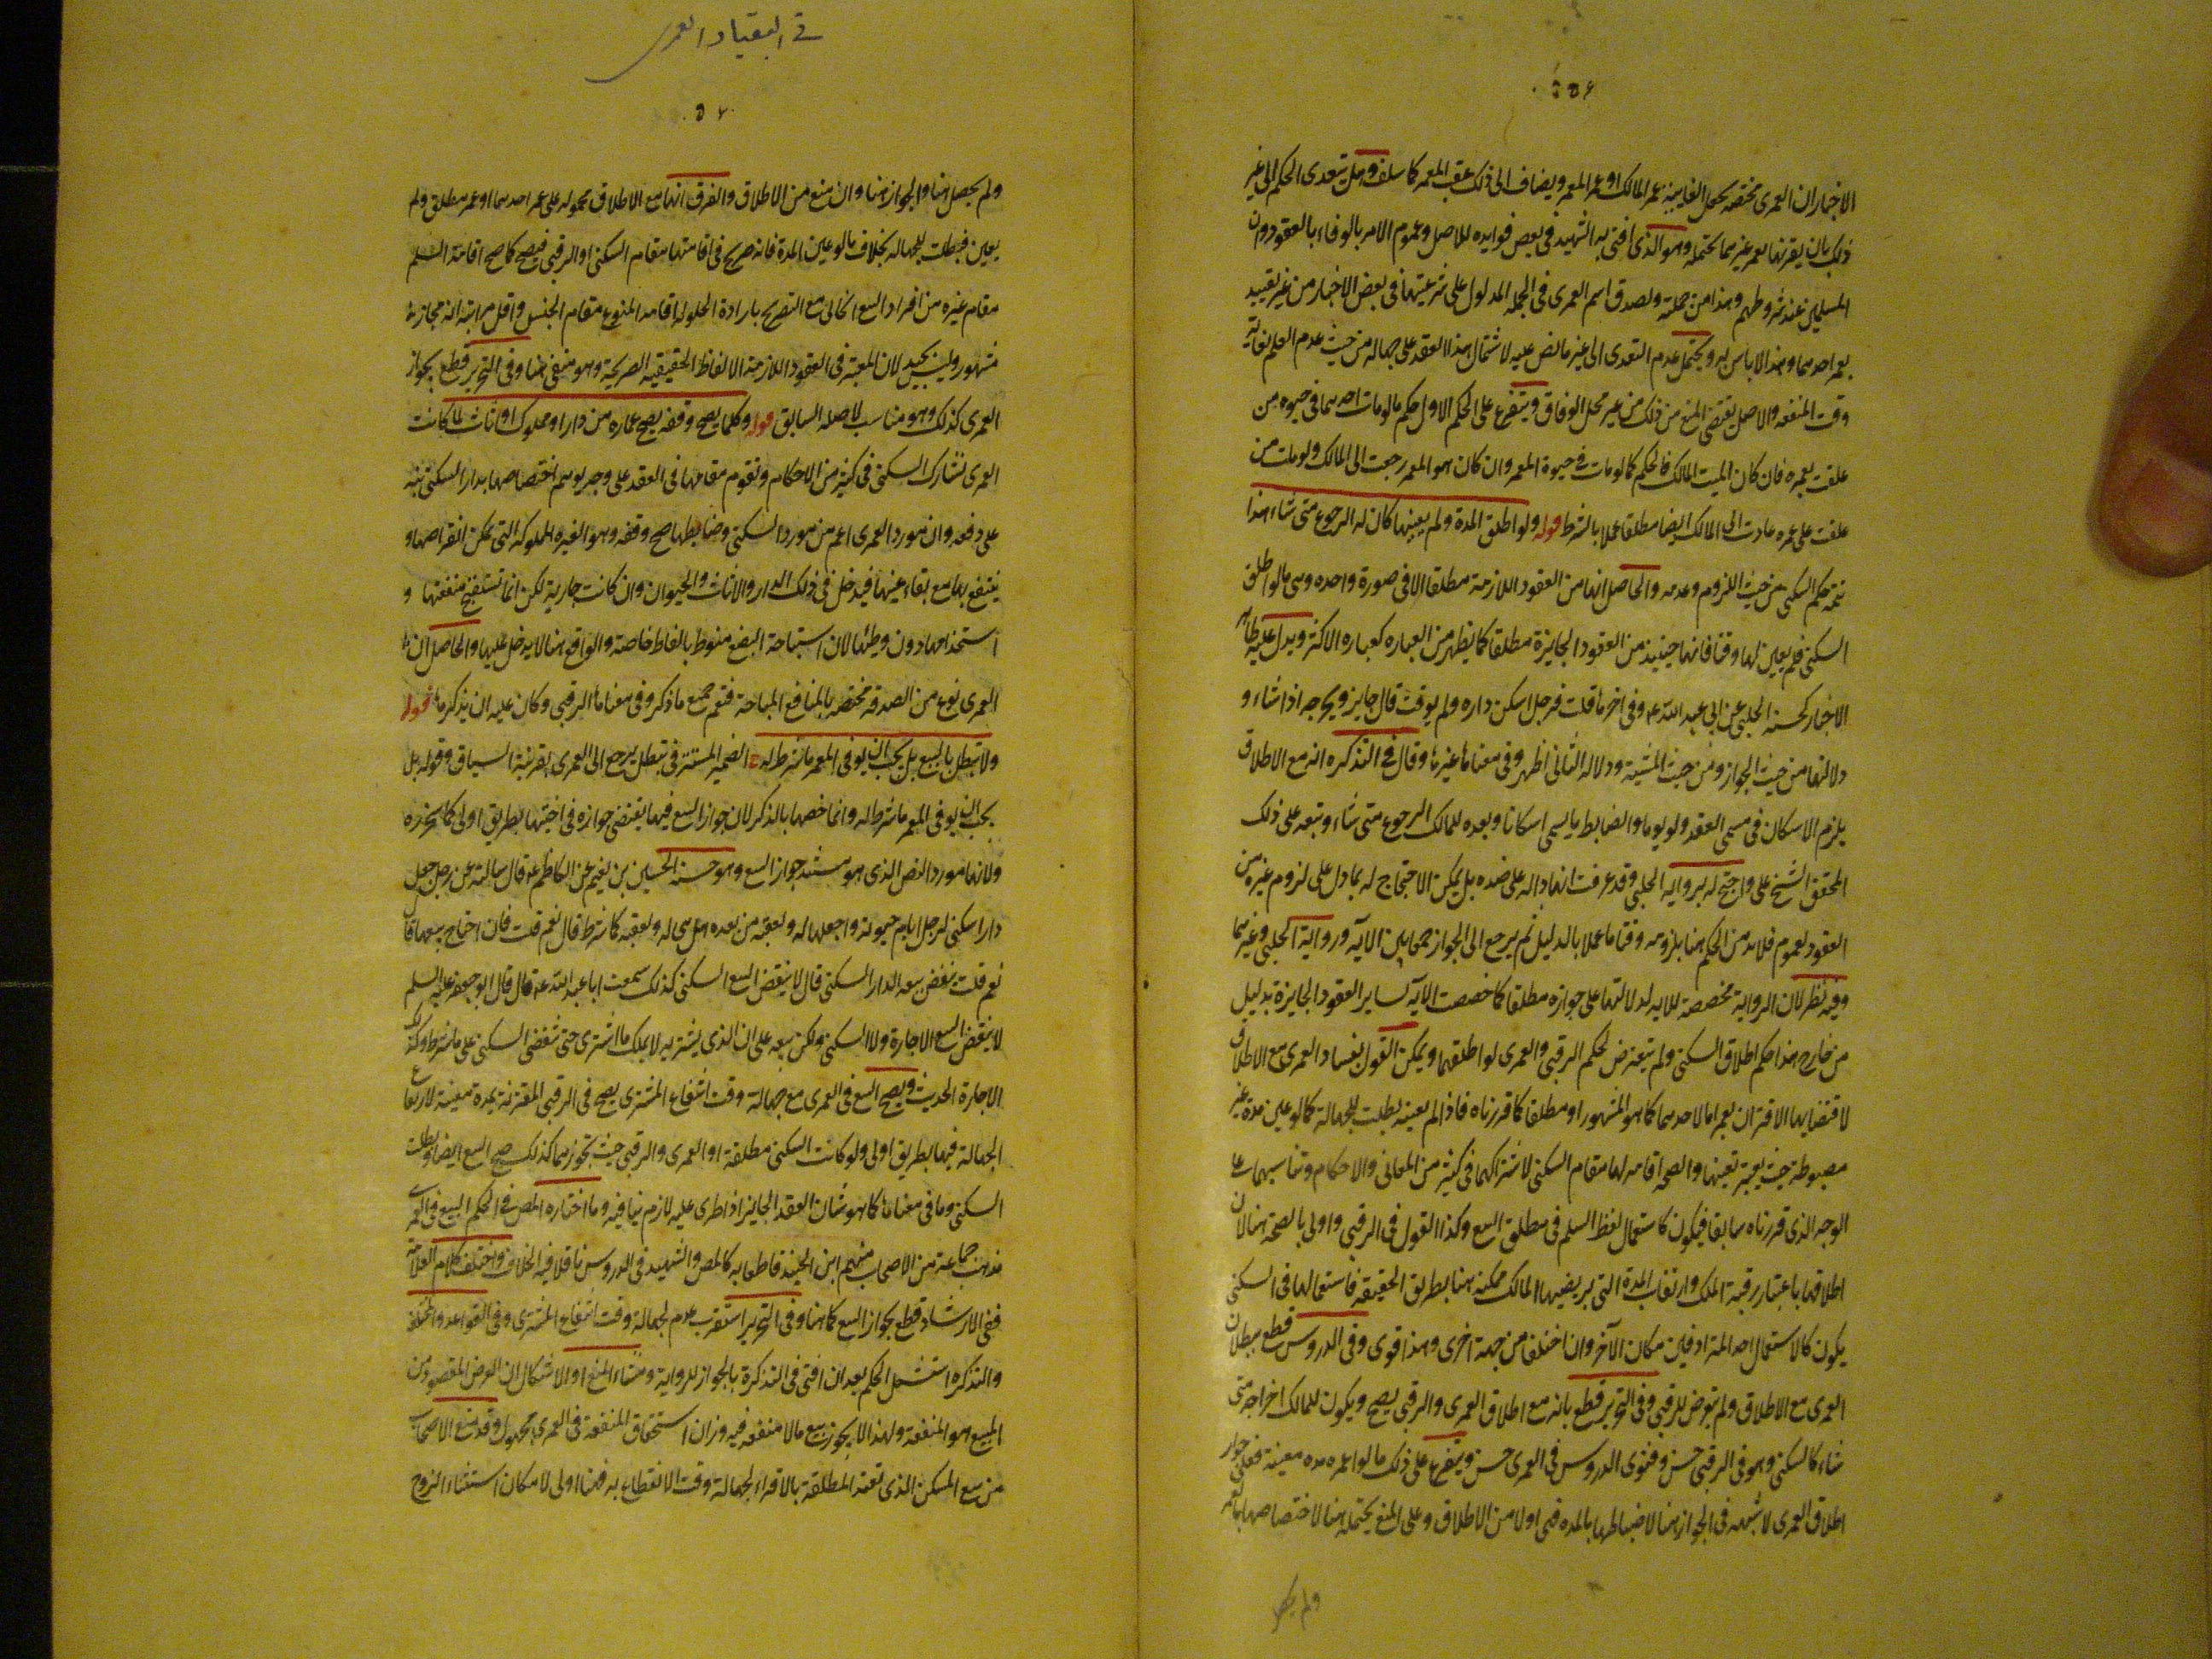 الاخبار ان العمرى مختصه بجعل الغاية عمر المالك او عمر المعمر ويضاف الى ذلك عقب المعمر كما سلف وهل يتعدى الحكم الى غير
ذلك بان يقرنها بعمر غيرهما يحتمله وهو الذى افتى به الشهيد فى بعض فوايده للاصل وعموم الامر بالوفاء بالعقود وان
المسلمين عند شروطهم وهذا من جملته ولصدق اسم العمرى فى الجمله المدلول على شرعيتها فى بعض الاخبار من غير تقييد
بعمر احدهما وهذا لا باس به ويحتمل عدم التعدى الى غير ما نص عليه لاشتمال هذا العقد على جهاله من حيث عدم العلم بغاية
وقت المنفعه والاصل يقتضى المنع من ذلك من غير محل الوفاق ويتفرع على الحكم الاول حكم ما لو مات احدهما فى حيوه من
علقت بعمره فان كان الميت المالك فالحكم كما لو مات فى حيوة المعمر وان كان هو المعمر رجعت الى المالك ولو مات من
علقت على عمره عادت الى المالك ايضا مطلقا عملا بالشرط قوله ولو اطلق المدة ولم يعينها كان له الرجوع متى شاء هذا
تتمه حكم السكنى من حيث اللزوم وعدمه والحاصل انها من العقود اللازمة مطلقا الا فى صورة واحده وهى ما لو اطلق
السكنى فلم يعين لها وقتا فانها حينئذ من العقود الجايزة مطلقا كما يظهر من العباره كعباره الاكثر ويدل عليه ظاهر
الاخبار كحسنة الحلبى عن ابى عبد الله ع وفى اخرها قلت فرجل اسكن داره ولم يوقت قال جايز ويخرجه اذا شاء و
دلالتها من حيث الجواز ومن حيث المشية ودلالة الثانى اظهر وفى معناها غيرها وقال فى التذكره انه مع الاطلاق
يلزم الاسكان فى مسمى العقد ولو يوما والضابط ما يسمى اسكانا وبعده للمالك الرجوع متى شاء وتبعه على ذلك
المحقق الشيخ على واحتج له برواية الحلبى وقد عرفت انها داله على ضده بل يمكن الاحتجاج له بما دل على لزوم غيره من
العقود لعموم فلا بد من الحكم هنا بلزومه وقتا ما عملا بالدليل ثم يرجع الى الجواز جمعا بين الآية ورواية الحلبى وغيرهما
وفيه نظر لان الرواية مخصصة للايه لدلالتها على جوازه مطلقا كما خصصت الآيه لساير العقود الجايزة بدليل
من خارج هذا حكم اطلاق السكنى ولم يتعرض لحكم الرقبى والعمرى لو اطلقهما ويمكن القول بفساد العمرى مع الاطلاق
لاقتضايها الاقتران بعمر اما لاحدهما كما هو المشهور او مطلقا كما قررناه فاذا لم يعينه بطلت للجهالة كما لو عين مدة غير
مضبوطة حيث يعتبر تعيينها والصحه اقامه لها مقام السكنى لاشتراكهما فى كثير من المعانى والاحكام وتناسبهما على
الوجه الذى قررناه سابقا فيكون كاستعمال لفظ السلم فى مطلق البيع وكذا القول فى الرقبى واولى بالصحة هنا لان
اطلاقها باعتبار رقبة الملك او ارتقاب المدة التى يرتضيها المالك ممكن هنا بطريق الحقيقه فاستعمالها فى السكنى
يكون كاستعمال احد المترادفين مكان الآخر وان اختلفا من جهة اخرى وهذا قوى وفى الدروس قطع ببطلان
العمرى مع الاطلاق ولم يتعرض للرقبى وفى التحرير قطع بانه مع اطلاق العمرى والرقبى يصح ويكون للمالك اخراجه متى
شاء كالسكنى وهو فى الرقبى حسن وفتوى الدروس فى العمرى حسن ويتفرع على ذلك ما لو اعمره مده معينة فعلى جواز
اطلاق العمرى لا شبهه فى الجواز هنا لانضباطها بالمده فهى اولى من الاطلاق وعلى المنع يحتمله هنا لاختصاصها بالعمر
ولم يحصل
۵۶۰
ولم يحصل هنا والجواز هنا وان منع من الاطلاق والفرق انها مع الاطلاق محموله على عمر احدهما او عمر مطلق ولم
يعين فبطلت للجهاله بخلاف ما لو عين المدة فانه صريح فى اقامتها مقام السكنى او الرقبى فيصح كما صح اقامة السلم
مقام غيره من افراد البيع الحالى مع التصريح بارادة الحلول اقامه للنوع مقام الجنس واقل مراتبه انه مجاز غير
مشهور وليس بجيد لان المعتبر فى العقود اللازمة الالفاظ الحقيقيه الصريحة وهو منتفى هنا وفى التحرير قطع بجواز
العمرى كذلك وهو مناسب لاصله السابق قوله وكلما يصح وقفه يصح عماره من دار او مملوك او اثاث لما كانت
العمرى تشارك السكنى فى كثير من الاحكام وتقوم مقامها فى العقد على وجه يوهم اختصاصها بدار السكنى نبه
على دفعه وان مورد العمرى اعم من مورد السكنى وضابطها صح وقفه وهو العين المملوكه التى يمكن انقراضها و
ينتفع بها مع بقاء عينها فيدخل فى ذلك الدار والاثاث والحيوان وان كانت جارية لكن انما تستبيح منفعتها و
استخدامها دون وطئها لان استباحة البضع منوط بالفاظ خاصه والواقع هنا لا يدخل عليها والحاصل ان
العمرى نوع من الصدقه مختصه بالمنافع المباحة فتعم جميع ما ذكر وفى معناها الرقبى وكان عليه ان يذكرها قوله
ولا تبطل بالبيع بل يجب ان يوفى المعمر ما شرط له الضمير المستتر فى تبطل يرجع الى العمرى بقرينة السياق وقوله بل
يجب ان يوفى المعمر ما شرط له وانما خصها بالذكر لان جواز البيع فيها يقتضى جوازه فى اختيها بطريق اولى كما سنحرره
ولانها مورد النص الذى هو مستند جواز البيع وهو حسنة الحسين بن نعيم عن الكاظم ع قال سالته عن رجل جعل
دارا سكنى لرجل ايام حيوته واجعلها له ولعقبه من بعده هل هى له ولعقبه كما شرط قال نعم قلت فان احتاج يبيعها قال
نعم قلت ينقض بيعه الدار السكنى قال لا ينقض البيع السكنى كذلك سمعت ابا عبد الله ع قال قال ابو جعفر عليه السلم
لا ينقض البيع الاجارة ولا السكنى ولكن يبيعه على ان الذى يشتريه لا يملك ما اشترى حتى تنقضى السكنى على ما شرط وكذلك
الاجارة الحديث ويصح البيع فى العمرى مع جهالة وقت انتفاع المشترى يصح فى الرقبى المقترنة بمدة معينه لارتفاع
الجهالة فيها بطريق اولى ولو كانت السكنى مطلقة او العمرى والرقبى حيث نجوزهما كذلك صح البيع ايضا وبطلت
السكنى وما فى معناها كما هو شان العقد الجايز اذا طرى عليه لازم ينافيه وما اختاره المص فى الحكم البيع فى العمرى
مذهب جماعة من الاصحاب منهم ابن الجنيد قاطعا به كالمص والشهيد فى الدروس ناقلا فيه الخلاف واختلف كلام العلامة
ففى الارشاد قطع بجواز البيع كما هنا وفى التحرير استقرب عدم لجهالة وقت انتفاع المشترى وفى القواعد والمختلف
والتذكره استشكل الحكم بعد ان افتى فى التذكرة بالجواز للرواية ومنشاء المنع او الاشكال ان الغرض المقصود من
المبيع هو المنفعة ولهذا لا يجوز بيع ما لا منفعة فيه وزمان استحقاق المنفعة فى العمرى مجهول وقد منع الاصحاب
من بيع المسكن الذى تعتد المطلقة بالاقراء لجهالة وقت الانقطاع به فهنا اولى لامكان استثناء الزوج